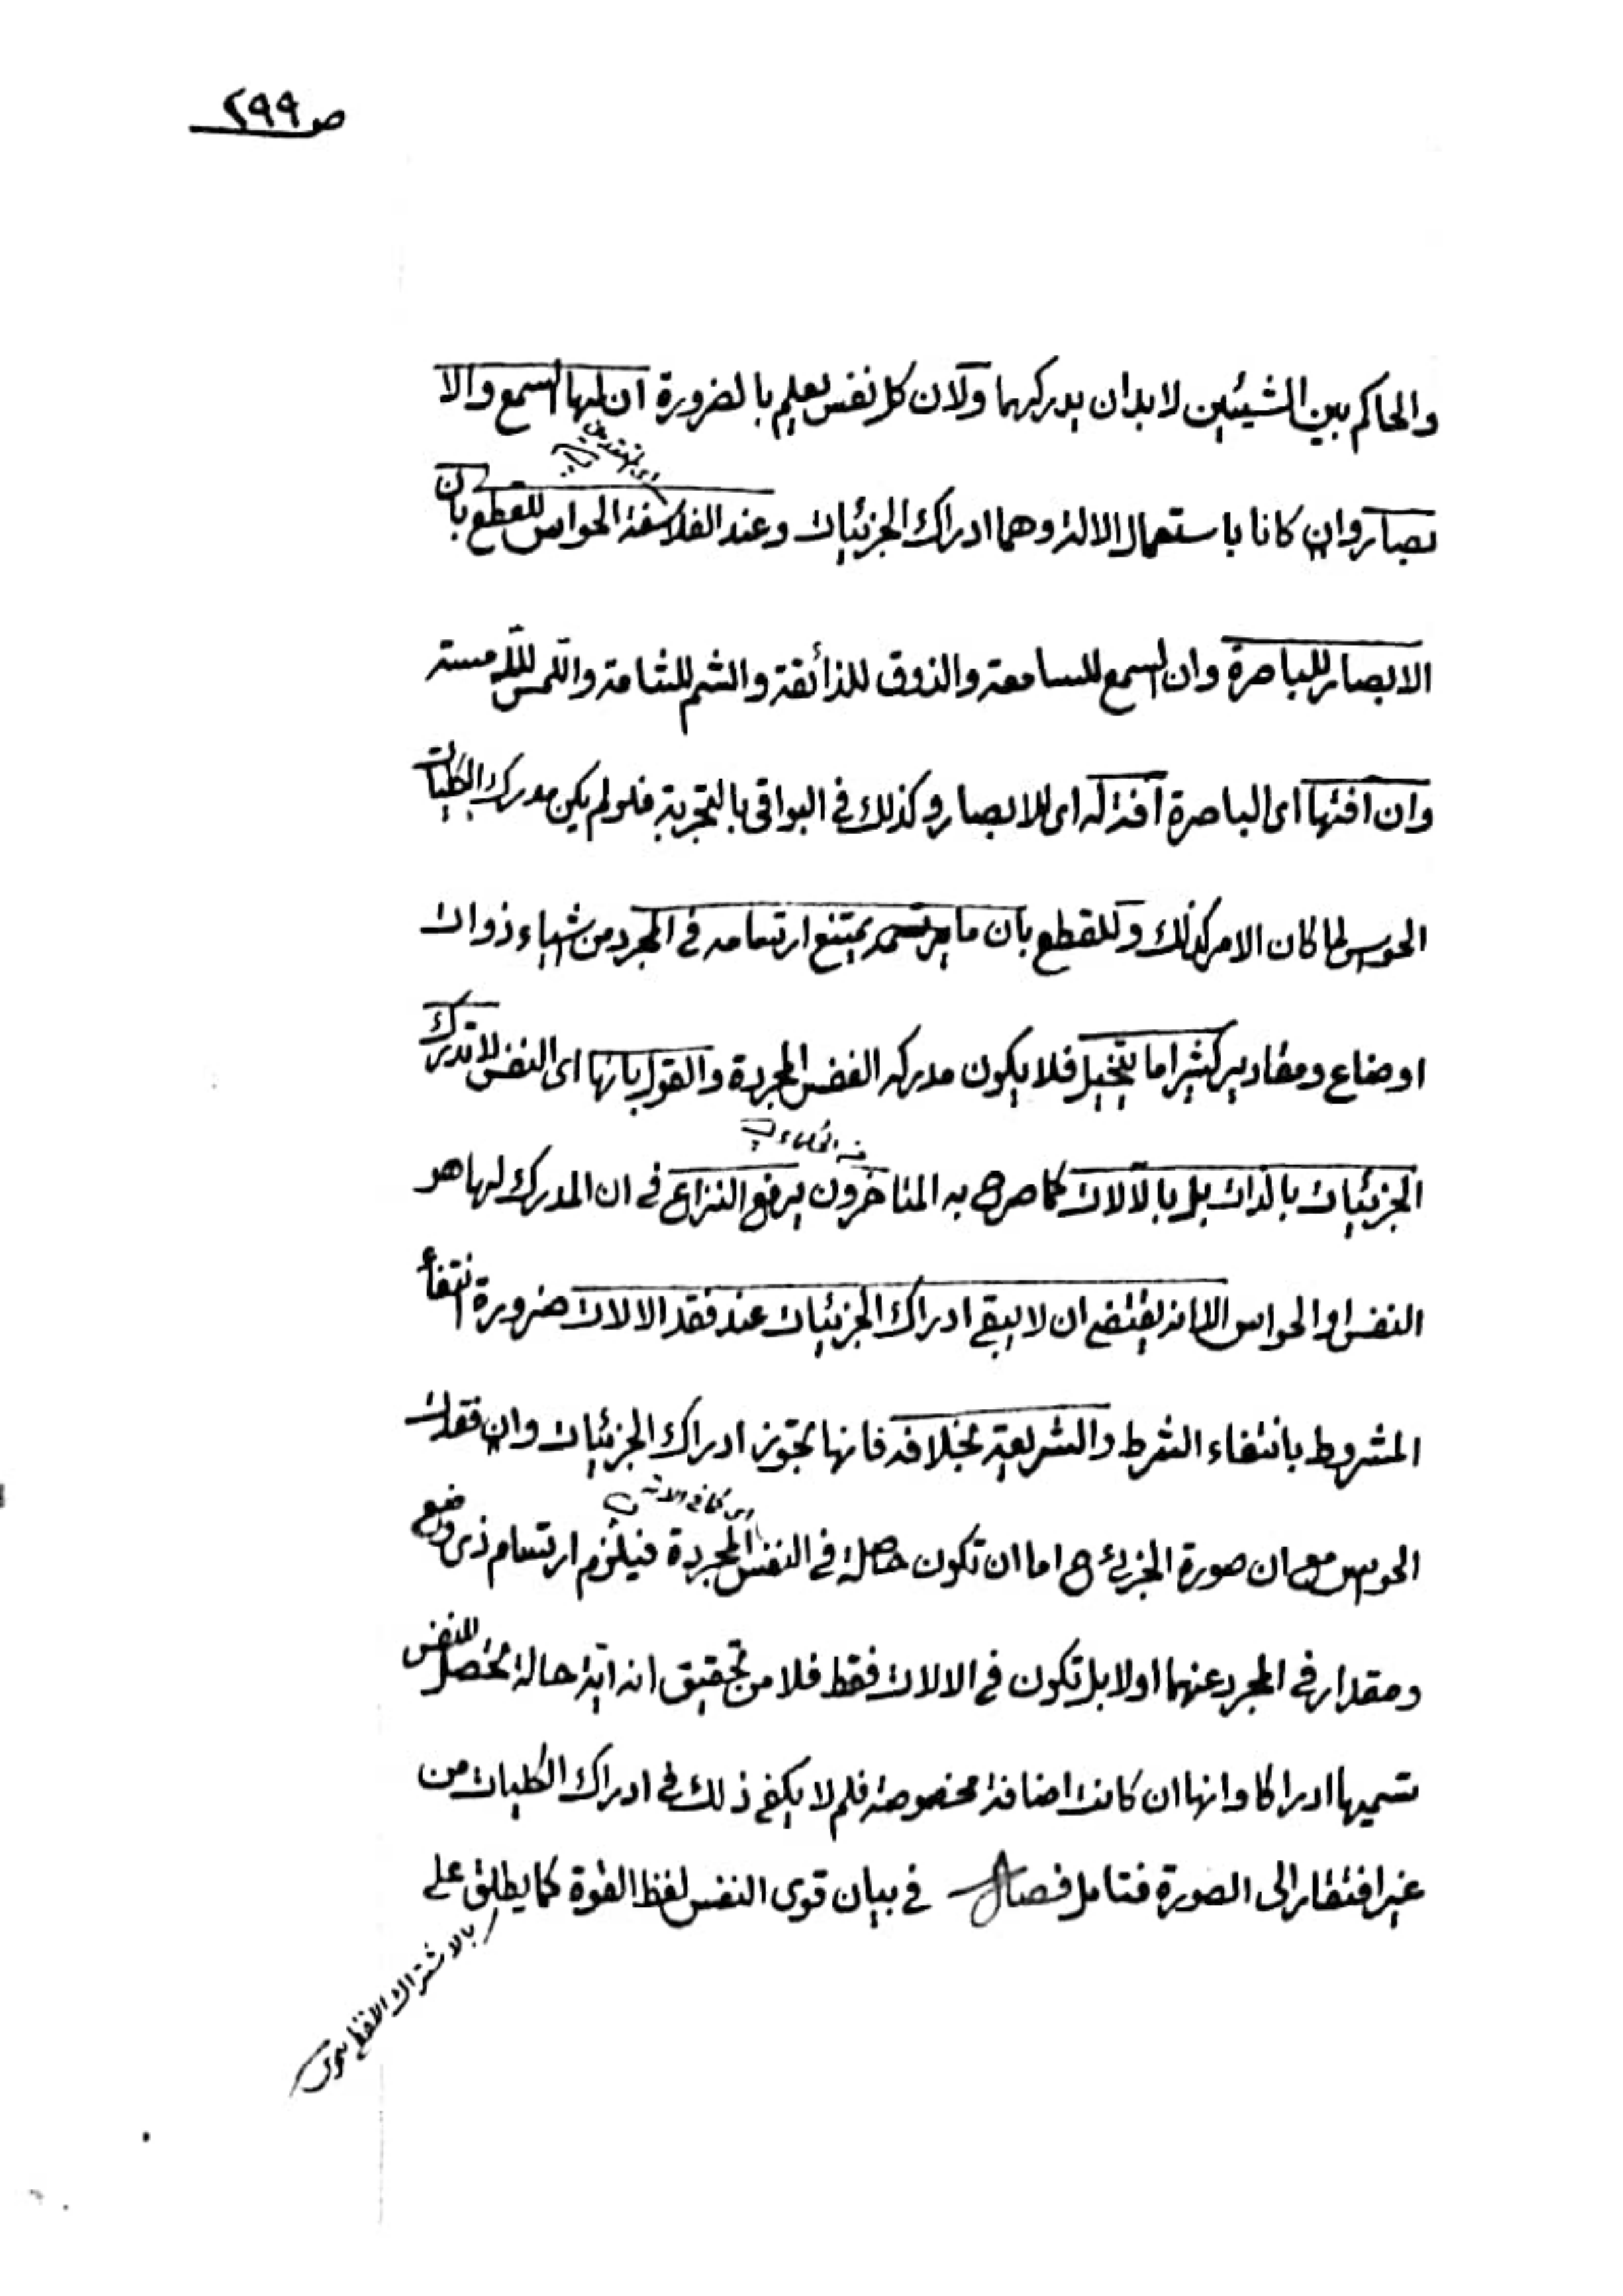 ص ٢٩٩
والحاكم بين الشيئين لابد ان يدركهما ولان كل نفس يعلم بالضرورة ان لها السمع والا
بصار وان كانا باستعمال الالة وهما ادراك الجزئيات وعند الفلاسفة الحواس للقطع بان
الابصار للباصرة وان السمع للسامعة والذوق للذائقة والشم للشامة واللمس لللامسة
وان افتها اى الباصرة آفة له اى للابصار وكذلك فى البواقى بالتجربة فلو لم يكن مدرك الكليات
الحوس لما كان الامر كذلك وللقطع بان ما يرتسم يمتنع ارتسامه فى المجرد من شياء ذوات
اوضاع ومقادير كثيرا ما يتخيل فلا يكون مدركه النفس المجردة والقول بانها اى النفس لا تدرك
الجزئيات بالذات بل بالآلات كما صرح به المتاخرون يرفع النزاع فى ان المدرك لها هو
النفس او الحواس الا انه يقتضى ان لا يبقى ادراك الجزئيات عند فقد الالات ضرورة انتفاء
المشروط بانتفاء الشرط والشريعة بخلافه فانها تجوز ادراك الجزئيات وان فقدت
الحوس مع ان صورة الجزئ ح اما ان تكون حاصلة فى النفس المجردة فيلزم ارتسام ذى وضع
ومقدار فى المجرد عنهما اولا بل تكون فى الالات فقط فلا من تحقيق انه اية حالة تحصل للنفس
تسميها ادراكا وانها ان كانت اضافة مخصوصة فلم لا يكفى ذلك فى ادراك الكليات من
غير افتقار الى الصورة فتامل فصل فى بيان قوى النفس لفظ القوة كما يطلق على
بالاشتراك اللفظى